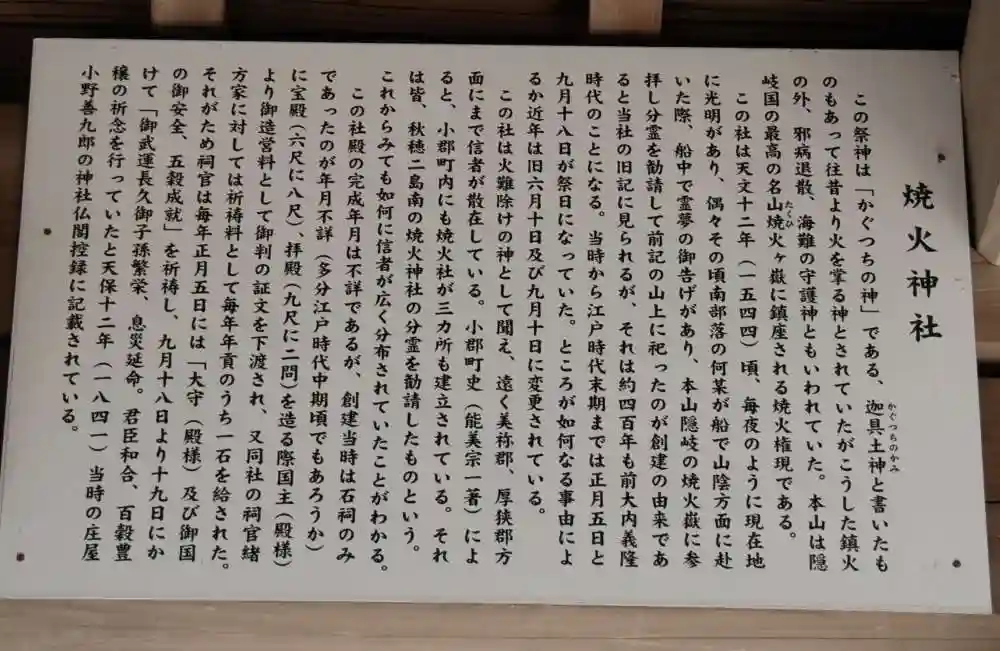 焼火神社
この祭神は「かぐつちの神」である、迦具土神と書いたも
かぐつちのかみ
のもあって往昔より火を掌る神とされていたがこうした鎮火
の外、邪病退散、海難の守護神ともいわれていた。本山は隠
岐国の最高の名山焼火ヶ嶽に鎮座される焼火権現である。
たくひ
この社は天文十二年（一五四四）頃、毎夜のように現在地
に光明があり、偶々その頃南部落の何某が船で山陰方面に赴
いた際、船中で霊夢の御告げがあり、本山隠岐の焼火嶽に参
拝し分霊を勧請して前記の山上に祀ったのが創建の由来であ
ると当社の旧記に見られるが、それは約四百年も前大内義隆
時代のことになる。当時から江戸時代末期までは正月五日と
九月十八日が祭日になっていた。ところが如何なる事由によ
るか近年は旧六月十日及び九月十日に変更されている。
この社は火難除けの神として聞え、遠く美祢郡、厚狭郡方
面にまで信者が散在している。小郡町史（能美宗一著）によ
ると、小郡町内にも焼火社が三カ所も建立されている。それ
は皆、秋穂二島南の焼火神社の分霊を勧請したものという。
これからみても如何に信者が広く分布されていたことがわかる。
この社殿の完成年月は不詳であるが、創建当時は石祠のみ
であったのが年月不詳（多分江戸時代中期頃でもあろうか）
に宝殿（六尺に八尺）、拝殿（九尺に二間）を造る際国主（殿様）
より御造営料として御判の証文を下渡され、又同社の祠官緒
方家に対しては祈祷料として毎年年貢のうち一石を給された。
それがため祠官は毎年正月五日には「大守（殿様）及び御国
の御安全、五穀成就」を祈祷し、九月十八日より十九日にか
けて「御武運長久御子孫繁栄、息災延命。君臣和合、百穀豊
穣の祈念を行っていたと天保十二年（一八四一）当時の庄屋
小野善九郎の神社仏閣控録に記載されている。